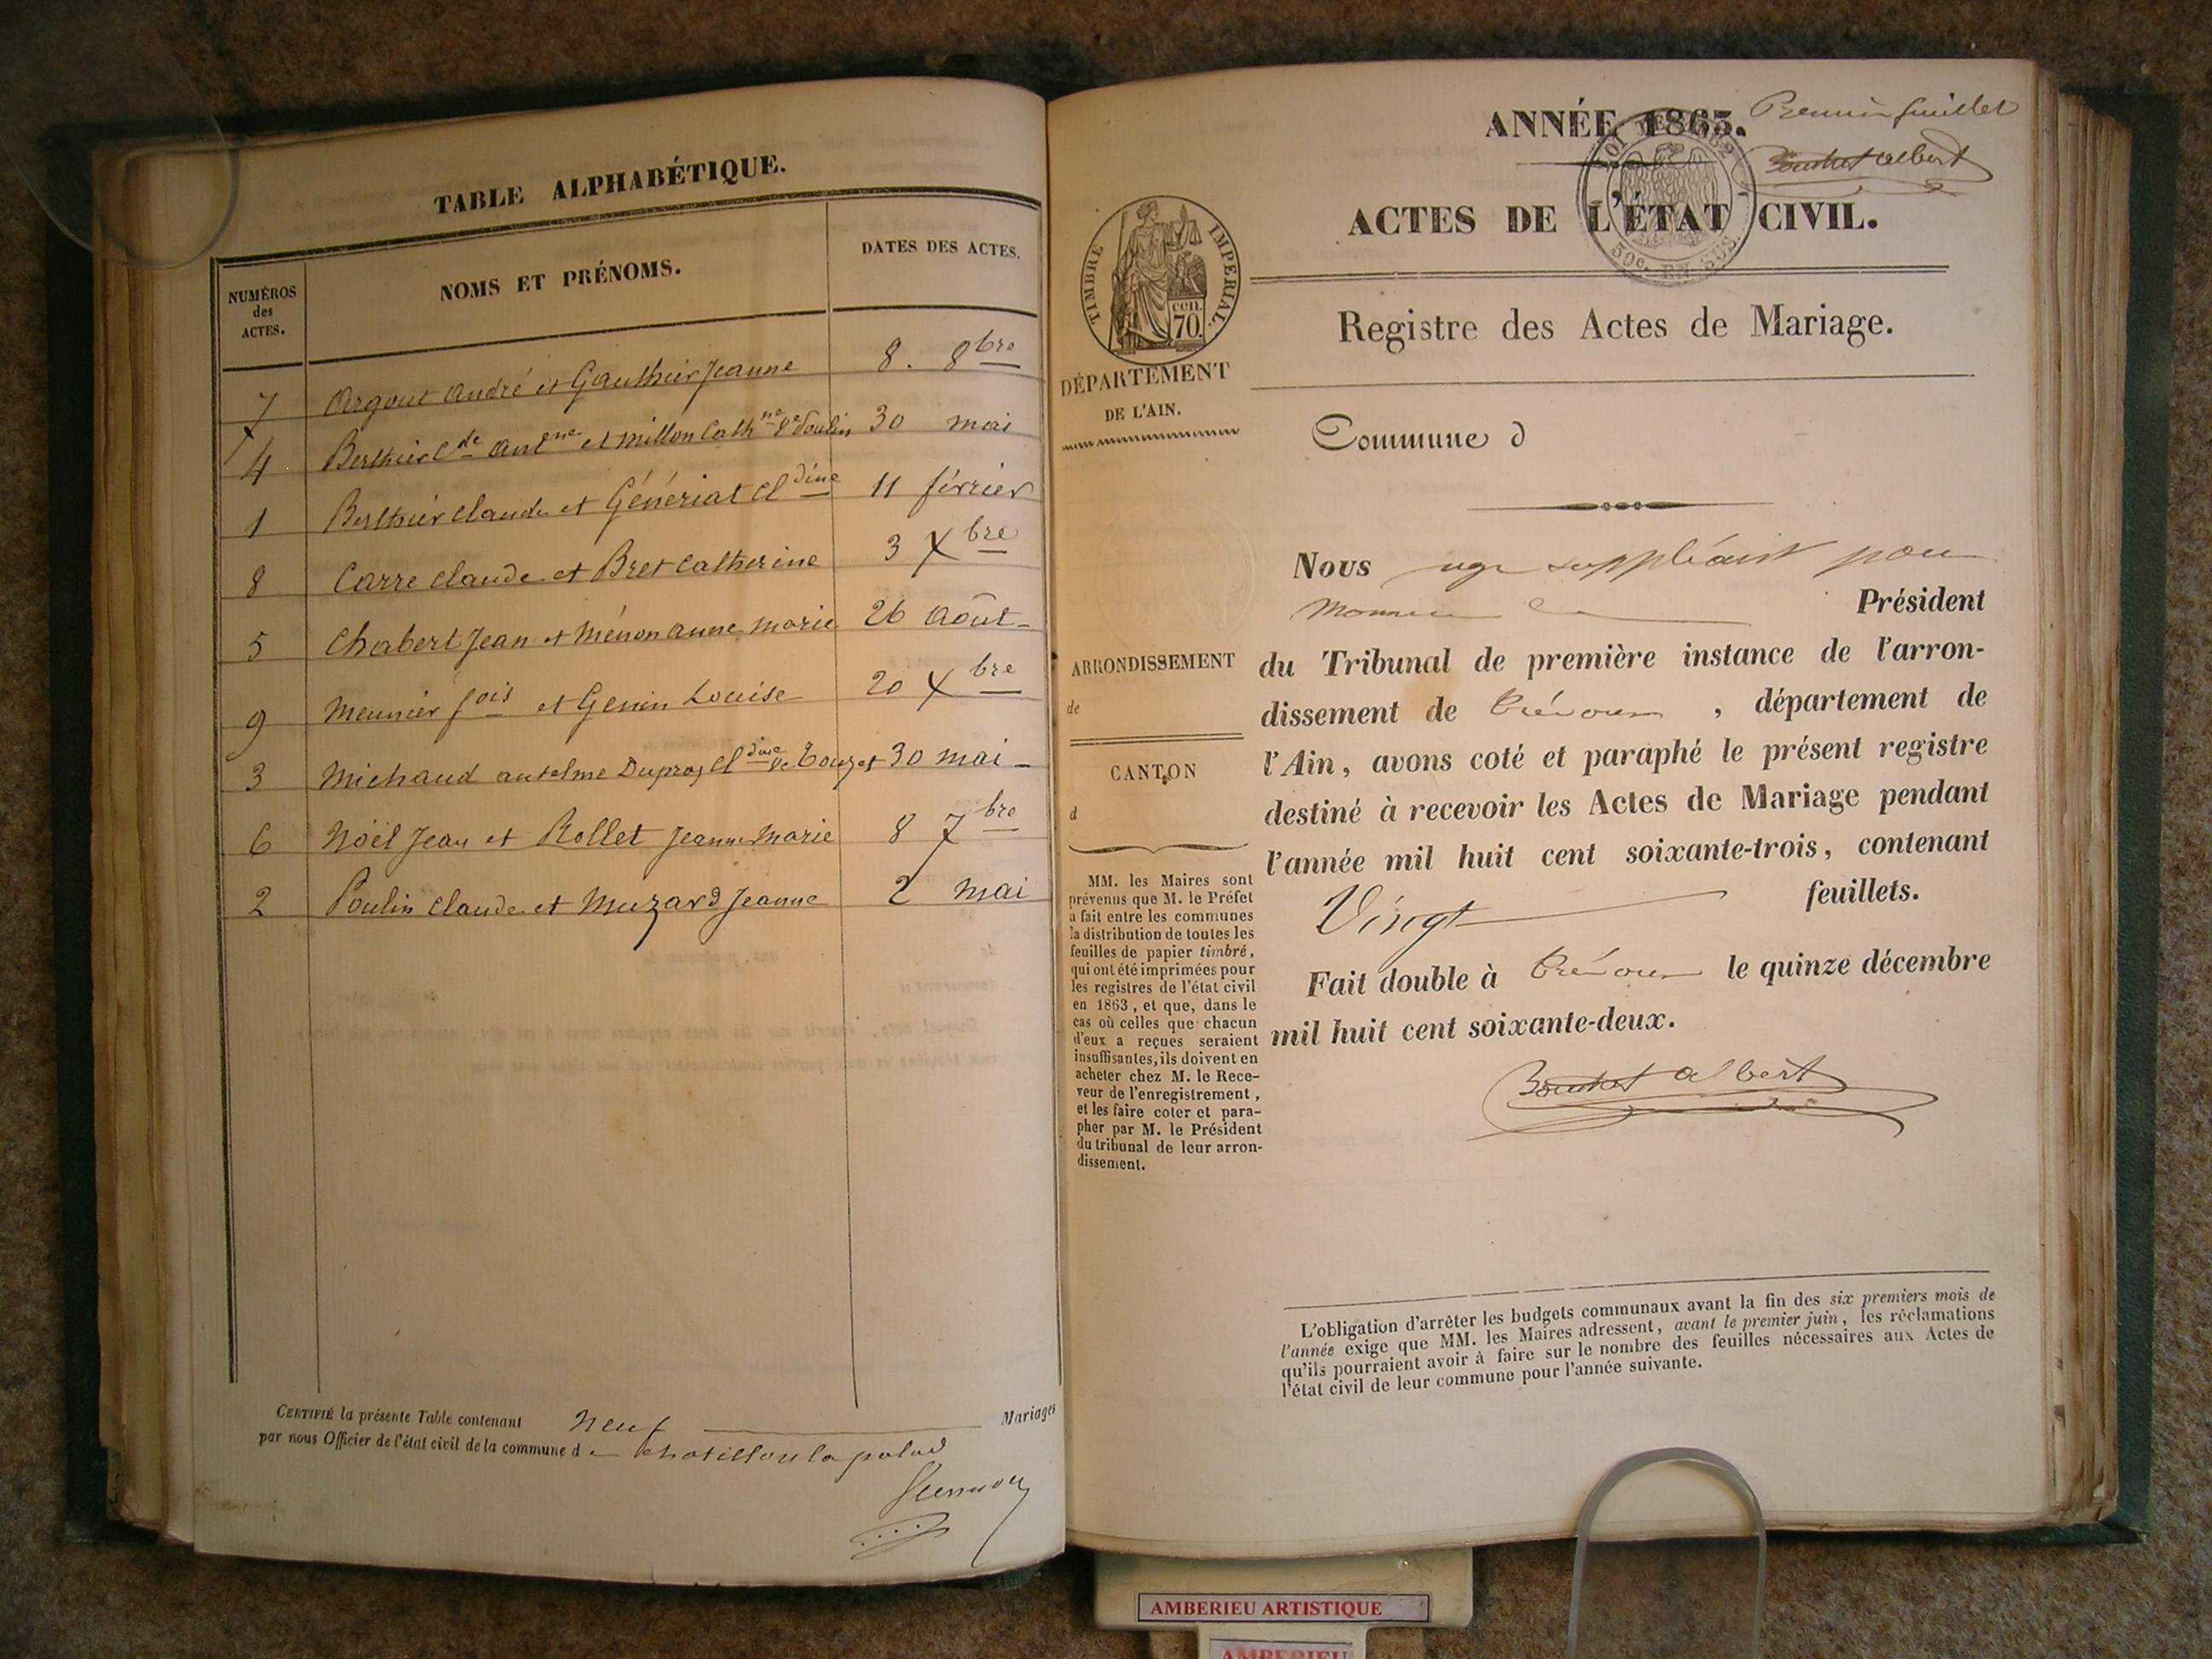 TABLE ALPHABÉTIQUE.
NUMÉROS des ACTES. NOMS ET PRÉNOMS. DATES DES ACTES.
7 Argout André et Gauthier Jeanne 8. 8bre
4 Berthier Cde Antne et Millon Cathne Ve Poulin 30 mai
1 Berthier Claude et Génériat Cldine 11 février
8 Carre Claude et Bret Catherine 3 Xbre
5 Chabert Jean et Ménon Anne Marie 26 Août
9 Meunier fois et Genin Louise 20 Xbre
3 Michaud Anselme Dupras Cldine Ve Touzet 30 mai
6 Noël Jean et Rollet Jeanne Marie 8 7bre
2 Poulin Claude et Muzard Jeanne 2 mai
CERTIFIÉ la présente Table contenant neuf Mariages
par nous Officier de l'état civil de la commune de Chatillon la palud
ANNÉE 1863. Premier feuillet
Bouchet Albert
ACTES DE L'ÉTAT CIVIL.
50c. EN SUS.
TIMBRE IMPERIAL.
cen. 70
Registre des Actes de Mariage.
DÉPARTEMENT
DE L'AIN.
Commune d
Nous juge suppléant pour
Monsieur le Président
ARRONDISSEMENT
de
CANTON
d
du Tribunal de première instance de l'arron-
dissement de Trévoux, département de
l'Ain, avons coté et paraphé le présent registre
destiné à recevoir les Actes de Mariage pendant
l'année mil huit cent soixante-trois, contenant
Vingt feuillets.
Fait double à Trévoux le quinze décembre
mil huit cent soixante-deux.
Bouchet Albert
MM. les Maires sont
prévenus que M. le Préfet
a fait entre les communes
la distribution de toutes les
feuilles de papier timbré,
qui ont été imprimées pour
les registres de l'état civil
en 1863, et que, dans le
cas où celles que chacun
d'eux a reçues seraient
insuffisantes, ils doivent en
acheter chez M. le Rece-
veur de l'enregistrement,
et les faire coter et para-
pher par M. le Président
du tribunal de leur arron-
dissement.
L'obligation d'arrêter les budgets communaux avant la fin des six premiers mois de
l'année exige que MM. les Maires adressent, avant le premier juin, les réclamations
qu'ils pourraient avoir à faire sur le nombre des feuilles nécessaires aux Actes de
l'état civil de leur commune pour l'année suivante.
AMBERIEU ARTISTIQUE
AMBERIEU